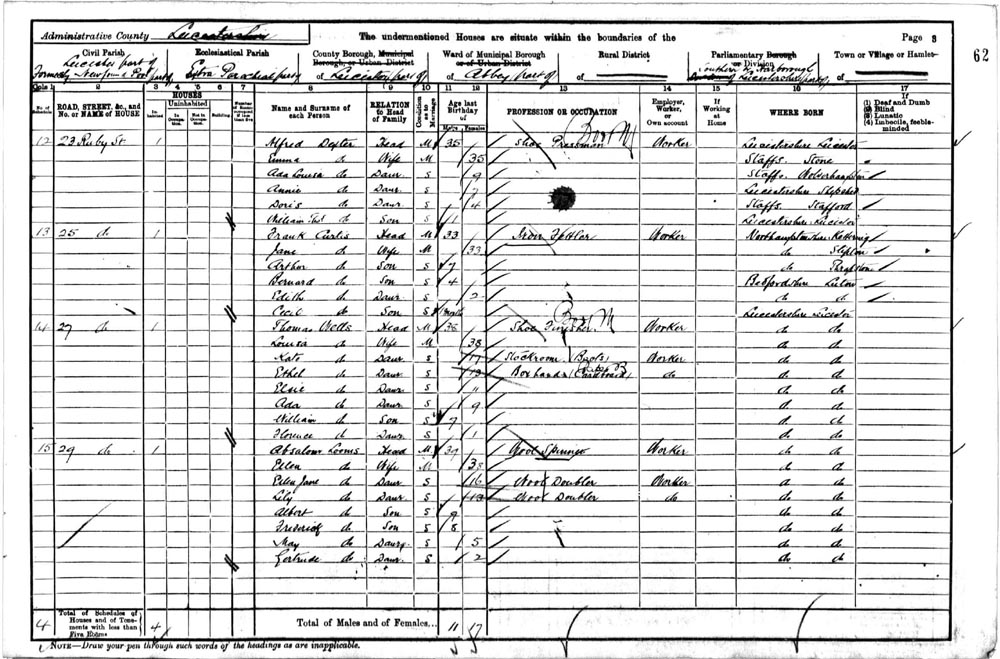 Administrative County Leicestershire The undermentioned Houses are situate within the boundaries of the Page 8
62
Civil Parish Ecclesiastical Parish County Borough, Municipal Borough, or Urban District Ward of Municipal Borough or of Urban District Rural District Parliamentary Borough or Division Town or Village or Hamlet
Leicester part of
Extra Parochial part of Leicester part of of Abbey part of of of
Cols 1 2 3 4 5 6 7 8 9 10 11 12 13 14 15 16 17
No. of Schedule ROAD, STREET, &c., and No. or NAME of HOUSE HOUSES In-habited Uninhabited In Occupation Not in Occupation Building Name and Surname of each Person RELATION to Head of Family Condition as to Marriage Age last Birthday of Males Females PROFESSION OR OCCUPATION Employer, Worker, or Own account If Working at Home WHERE BORN If (1) Deaf and Dumb (2) Blind (3) Lunatic (4) Imbecile, feeble-minded
12 23 Ruby St 1 Alfred Dexter Head M 35 Shoe Pressman Worker Leicestershire Leicester
Emma do Wife M 35 Staffs. Stone
Ada Louisa do Daur S 9 Staffs. Wolverhampton
Annie do Daur S 7 Leicestershire Shepshed
Doris do Daur S 4 Staffs. Stafford
William Thos do Son S 1 Leicestershire Leicester
13 25 do 1 Frank Curtis Head M 33 Iron Fettler Worker Northamptonshire Kettering
Jane do Wife M 33 do Slipton
Arthur do Son S 7 do Thrapstone
Bernard do Son S 4 Bedfordshire Luton
Edith do Daur S 2 do do
Cecil do Son S month Leicestershire Leicester
14 27 do 1 Thomas Watts Head M 38 Shoe Finisher Worker do do
Louisa do Wife M 38 do do
Kate do Daur S 17 Stockroom (Boots) Worker do do
Ethel do Daur S 13 Boxhands (Cardboard) do do do
Elsie do Daur S 11 do do
Ada do Daur S 9 do do
William do Son S 7 do do
Florence do Daur S 1 do do
15 29 do 1 Absalom Looms Head M 39 Wool Spinner Worker do do
Ellen do Wife M 38 do do
Ellen Jane do Daur S 16 Wool Doubler Worker do do
Lily do Daur S 13 Wool Doubler do do do
Albert do Son S 9 do do
Frederick do Son S 8 do do
May do Daur S 5 do do
Gertrude do Daur S 2 do do
4 Total of Schedules of Houses and of Tenements with less than Five Rooms 4 Total of Males and of Females... 11 17
NOTE—Draw your pen through such words of the headings as are inapplicable.